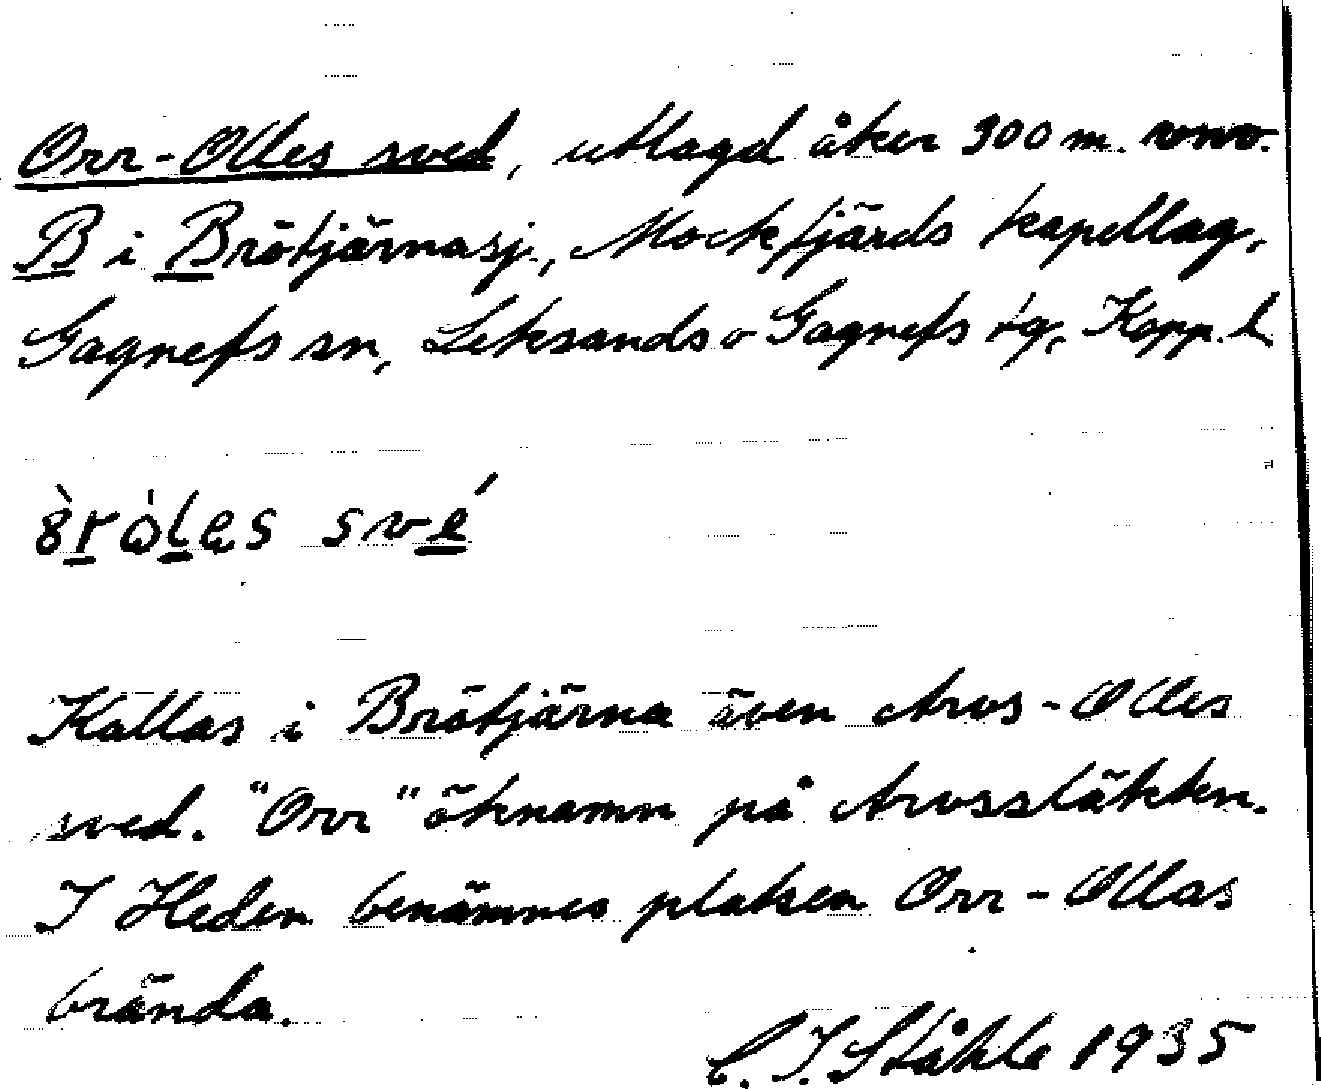 Orr-Olles sved, utlagd åker 300 m. vnv.
B i Brötjärnasj., Mockfjärds kapellag,
Gagnefs sn, Leksands o Gagnefs tg, Kopp. l
Kallas i Brötjärna även Arvs-Olles
sved. "Orr" öknamn på Arvssläkten.
I Heden benämnes platsen Orr-Ollas
brända.
C. I. Ståhle 1935